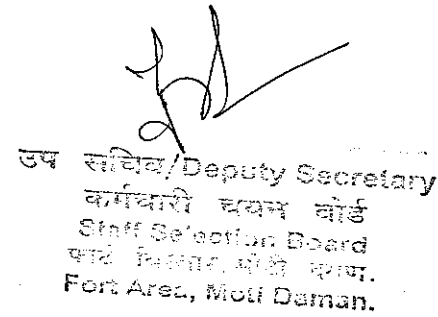 उप सचिव/Deputy Secretary
कर्मचारी चयन बोर्ड
Staff Selection Board
मोटी दमण.
Fort Area, Moti Daman.